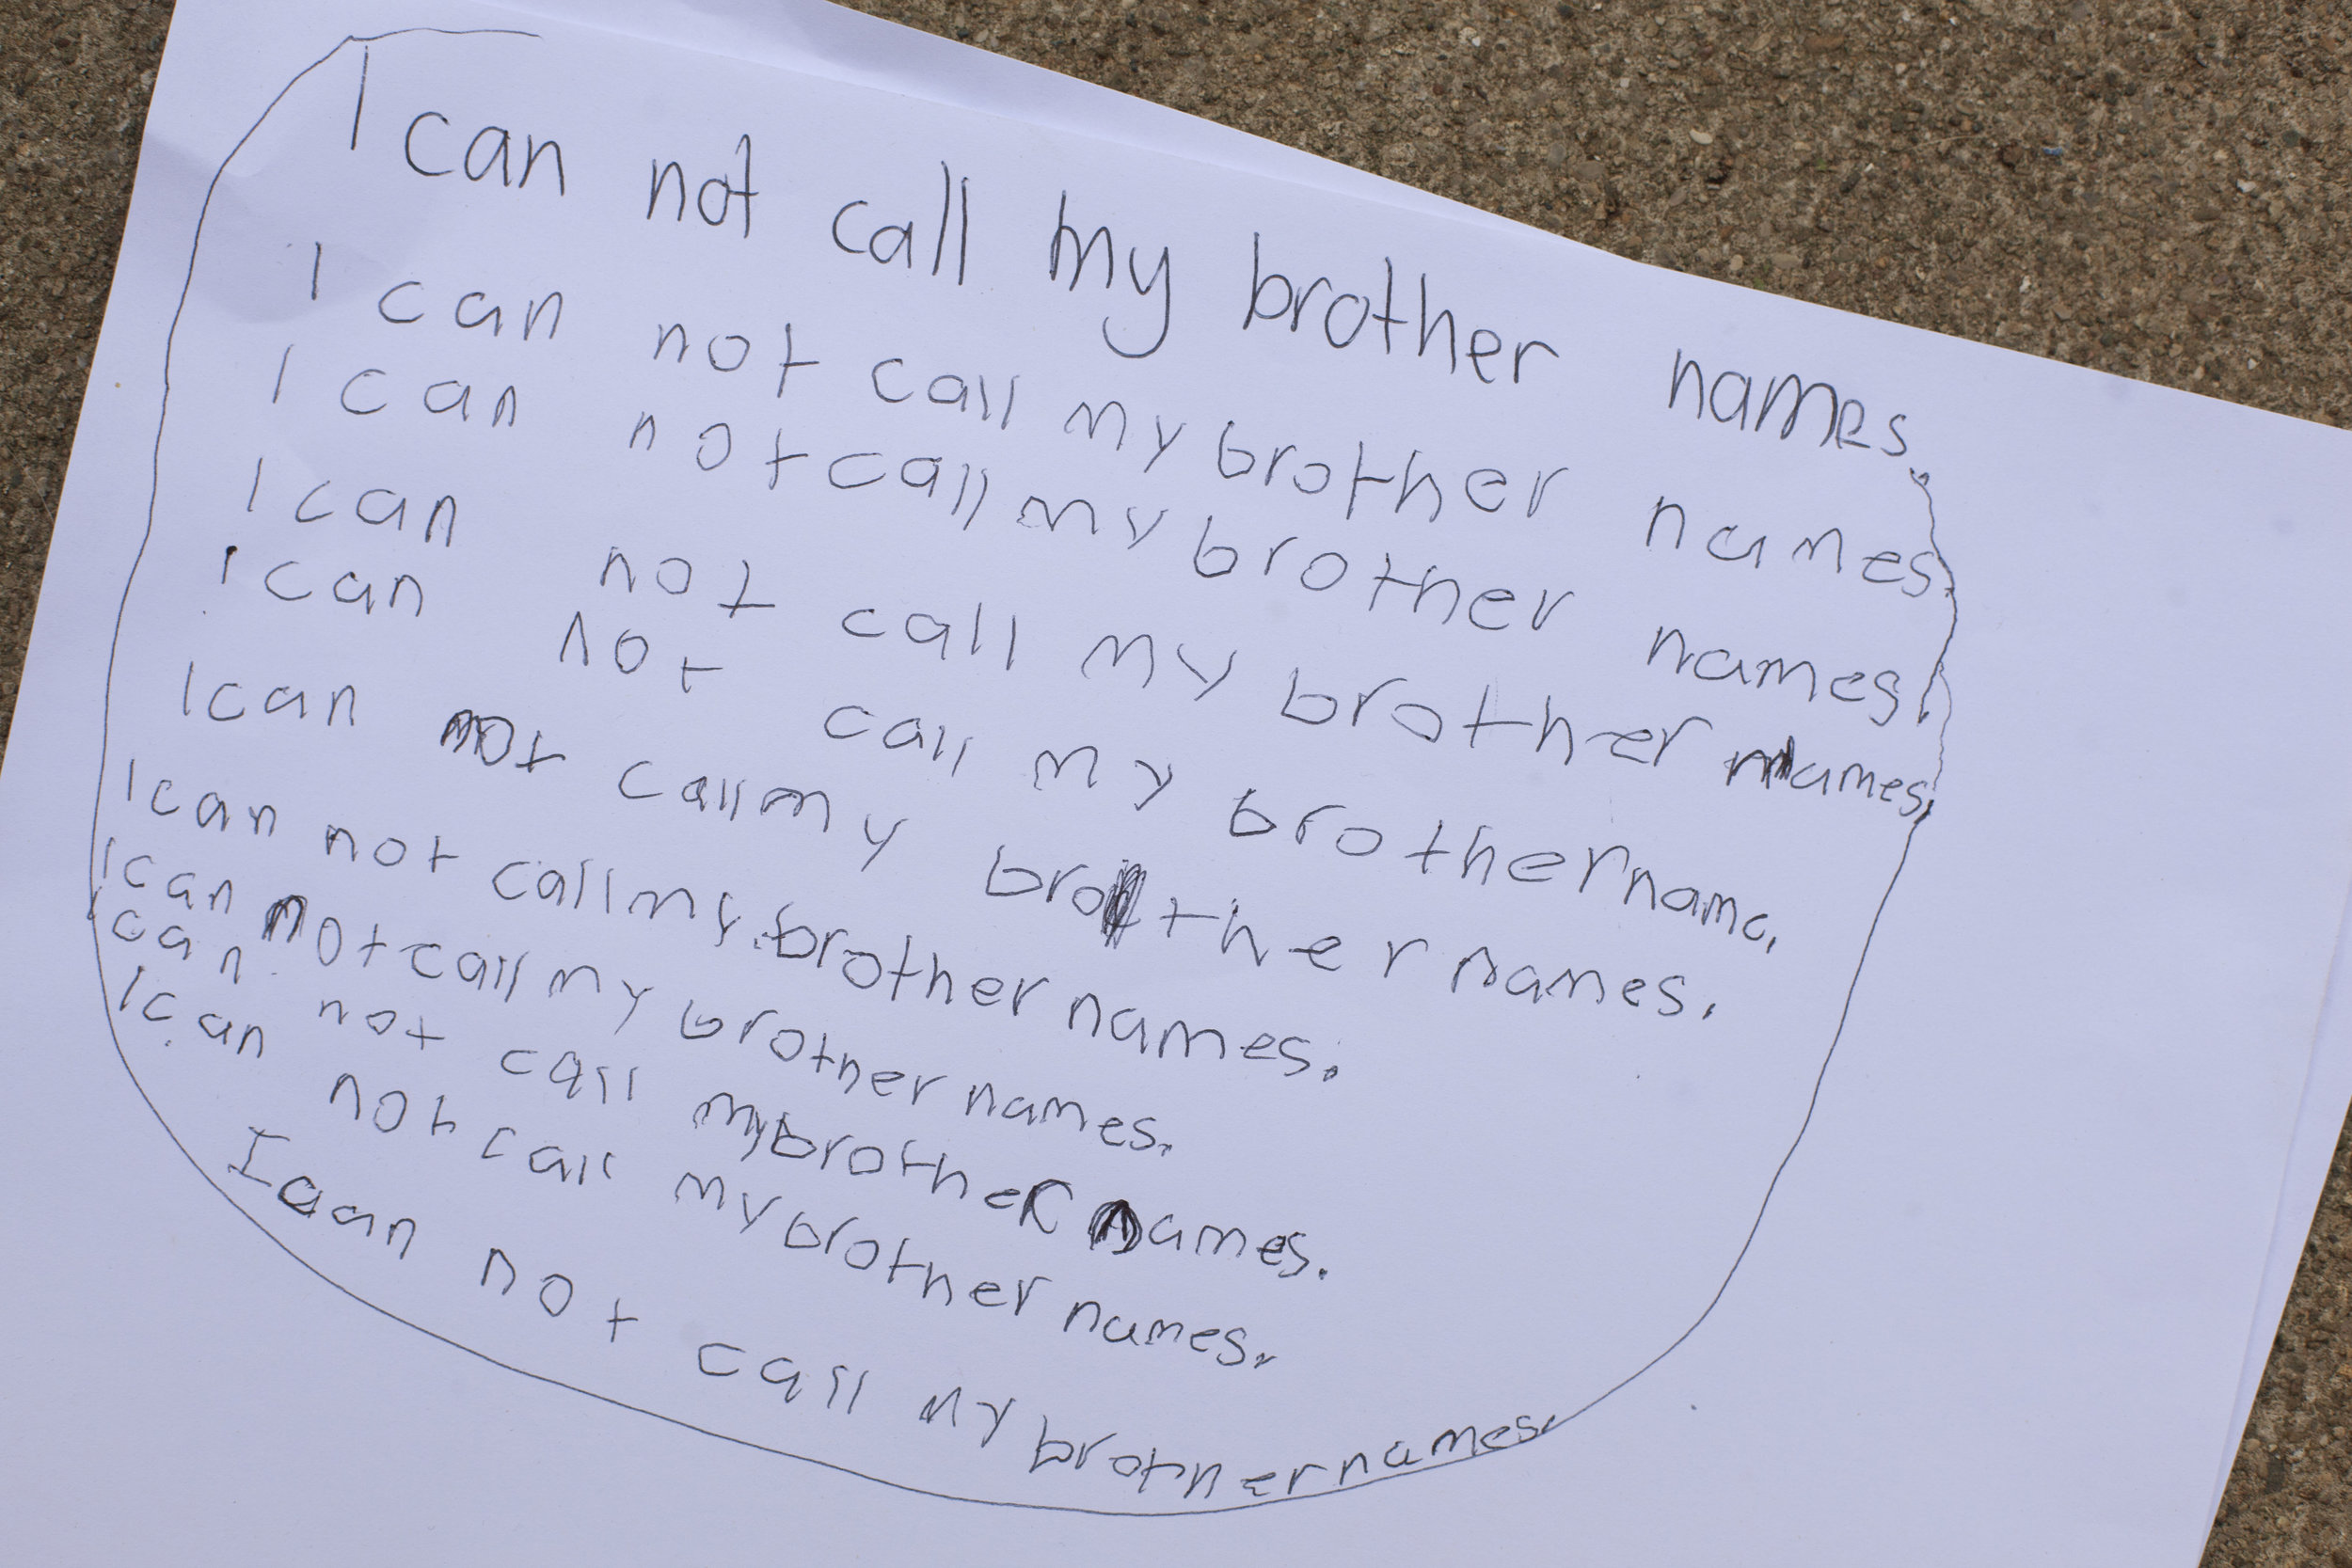 I can not call my brother names.
I can not call my brother names.
I can not call my brother names.
I can not call my brother names.
I can not call my brother name.
I can not call my brother names.
I can not call my brother names.
I can not call my brother names.
can not call my brother names.
I can not call my brother names.
I can not call my brother names.